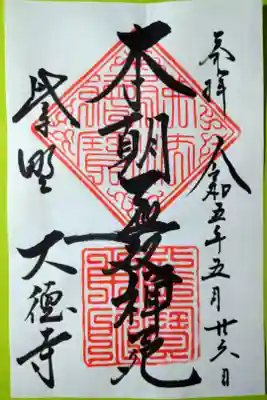 奉拝 令和五年五月廿六日
本朝無双禅苑
紫野 大徳寺